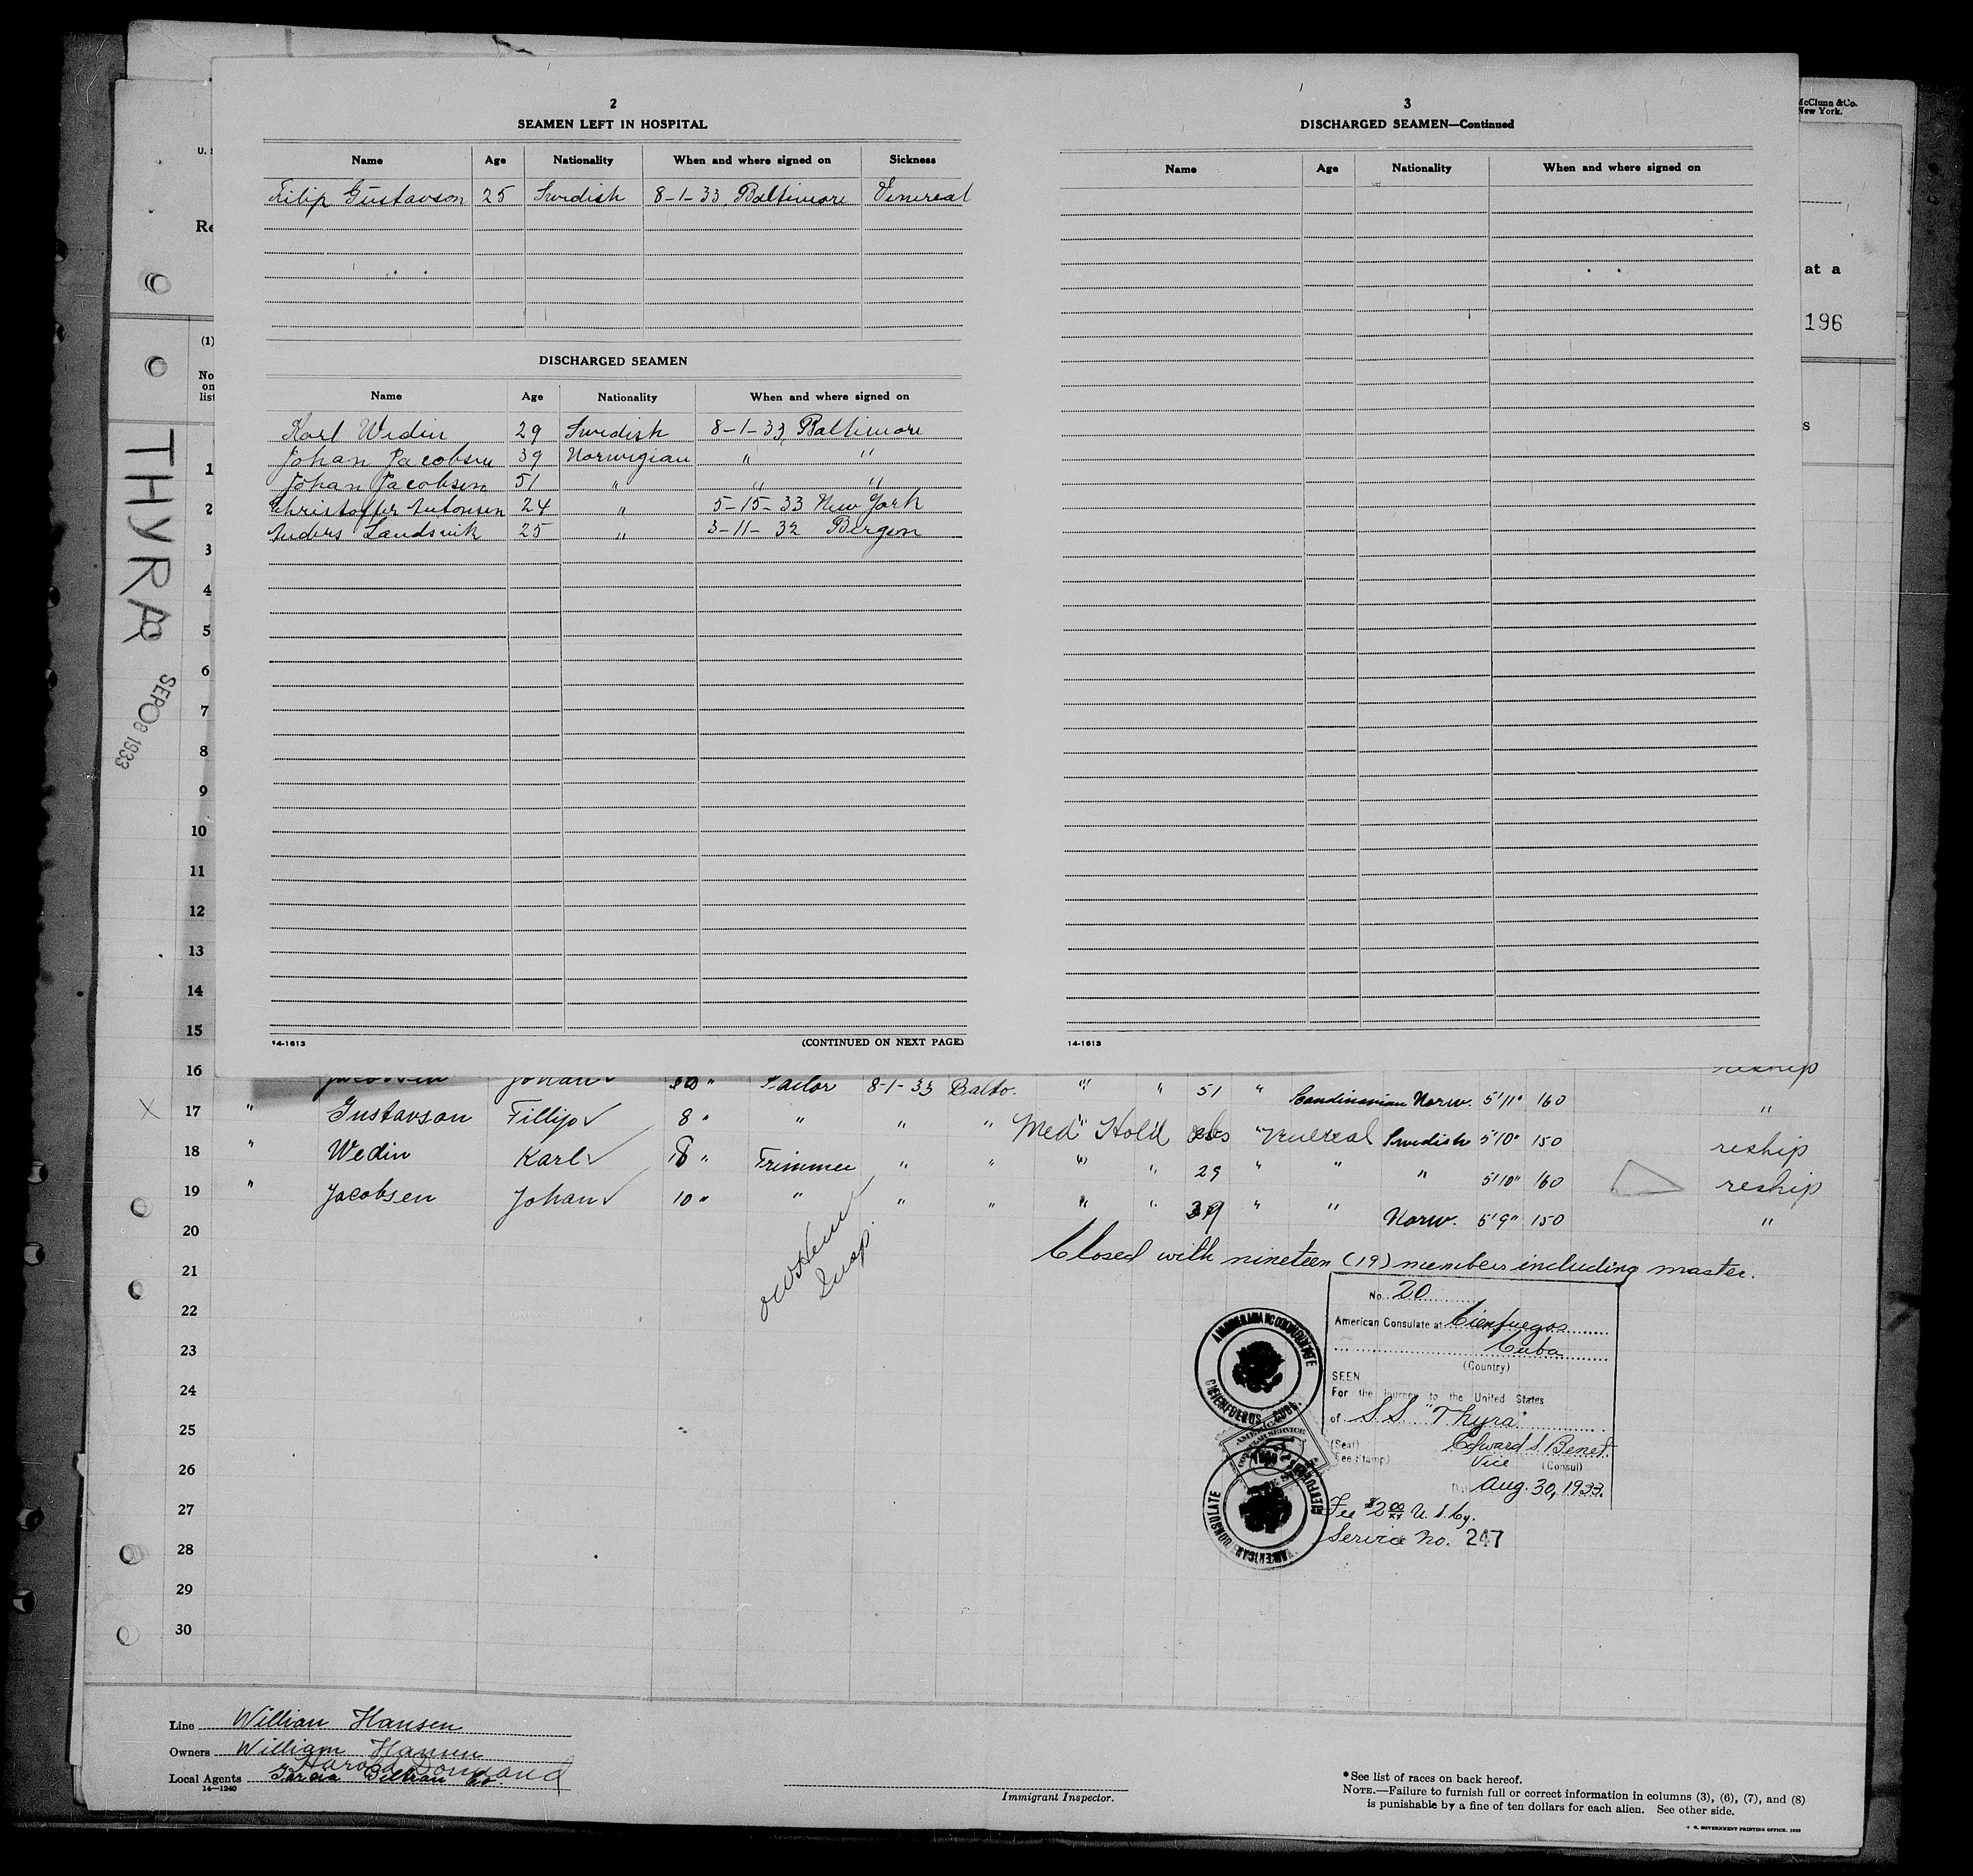 McClunn & Co.
New York.
U.
Re
at a
196
(1)
No
on
list
s
THYRA
SEP 08 1933
2
SEAMEN LEFT IN HOSPITAL
Name Age Nationality When and where signed on Sickness
Filip Gustavson 25 Swedish 8-1-33, Baltimore Venereal
DISCHARGED SEAMEN
Name Age Nationality When and where signed on
Karl Wedin 29 Swedish 8-1-33, Baltimore
Johan Jacobsen 39 Norwegian " "
Johan Jacobsen 51 " " "
Christoffer Antonsen 24 " 5-15-33 New York
Anders Landsvik 25 " 3-11-32 Bergen
14-1613 (CONTINUED ON NEXT PAGE)
3
DISCHARGED SEAMEN—Continued
Name Age Nationality When and where signed on
14-1613
1
2
3
4
5
6
7
8
9
10
11
12
13
14
15
16 Jacobsen Johan ✓ 30 " Sailor 8-1-33 Balto. " " 51 " Scandinavian Norw. 5'11" 160 reship
X 17 " Gustavson Fillip ✓ 8 " " " " Med Hold Venereal Swedish 5'10" 150 "
18 " Wedin Karl ✓ 8 " Trimmer " " " " 29 " " " 5'10" 160 reship
19 " Jacobsen Johan ✓ 10 " " " " " " 39 " " Norw. 5'9" 150 reship
"
20
Insp.
Closed with nineteen (19) members including master.
21
22
23
24
25
26
27
28
29
30
No. 20
American Consulate at Cienfuegos
Cuba
(Country)
SEEN
For the journey to the United States
of S.S. "Thyra"
(Seal) Edward S Benet
(Fee Stamp) Vice (Consul)
Aug. 30, 1933.
Fee $2 00/xx U.S. Cy.
Service No. 247
CIENFUEGOS CUBA.
AMERICAN CONSULAR SERVICE
AMERICAN CONSULATE
Line Willian Hansen
Owners William Hansen
Harold
Local Agents Garcia Beltran Co.
14—1240
Immigrant Inspector.
*See list of races on back hereof.
NOTE.—Failure to furnish full or correct information in columns (3), (6), (7), and (8)
is punishable by a fine of ten dollars for each alien. See other side.
GOVERNMENT PRINTING OFFICE